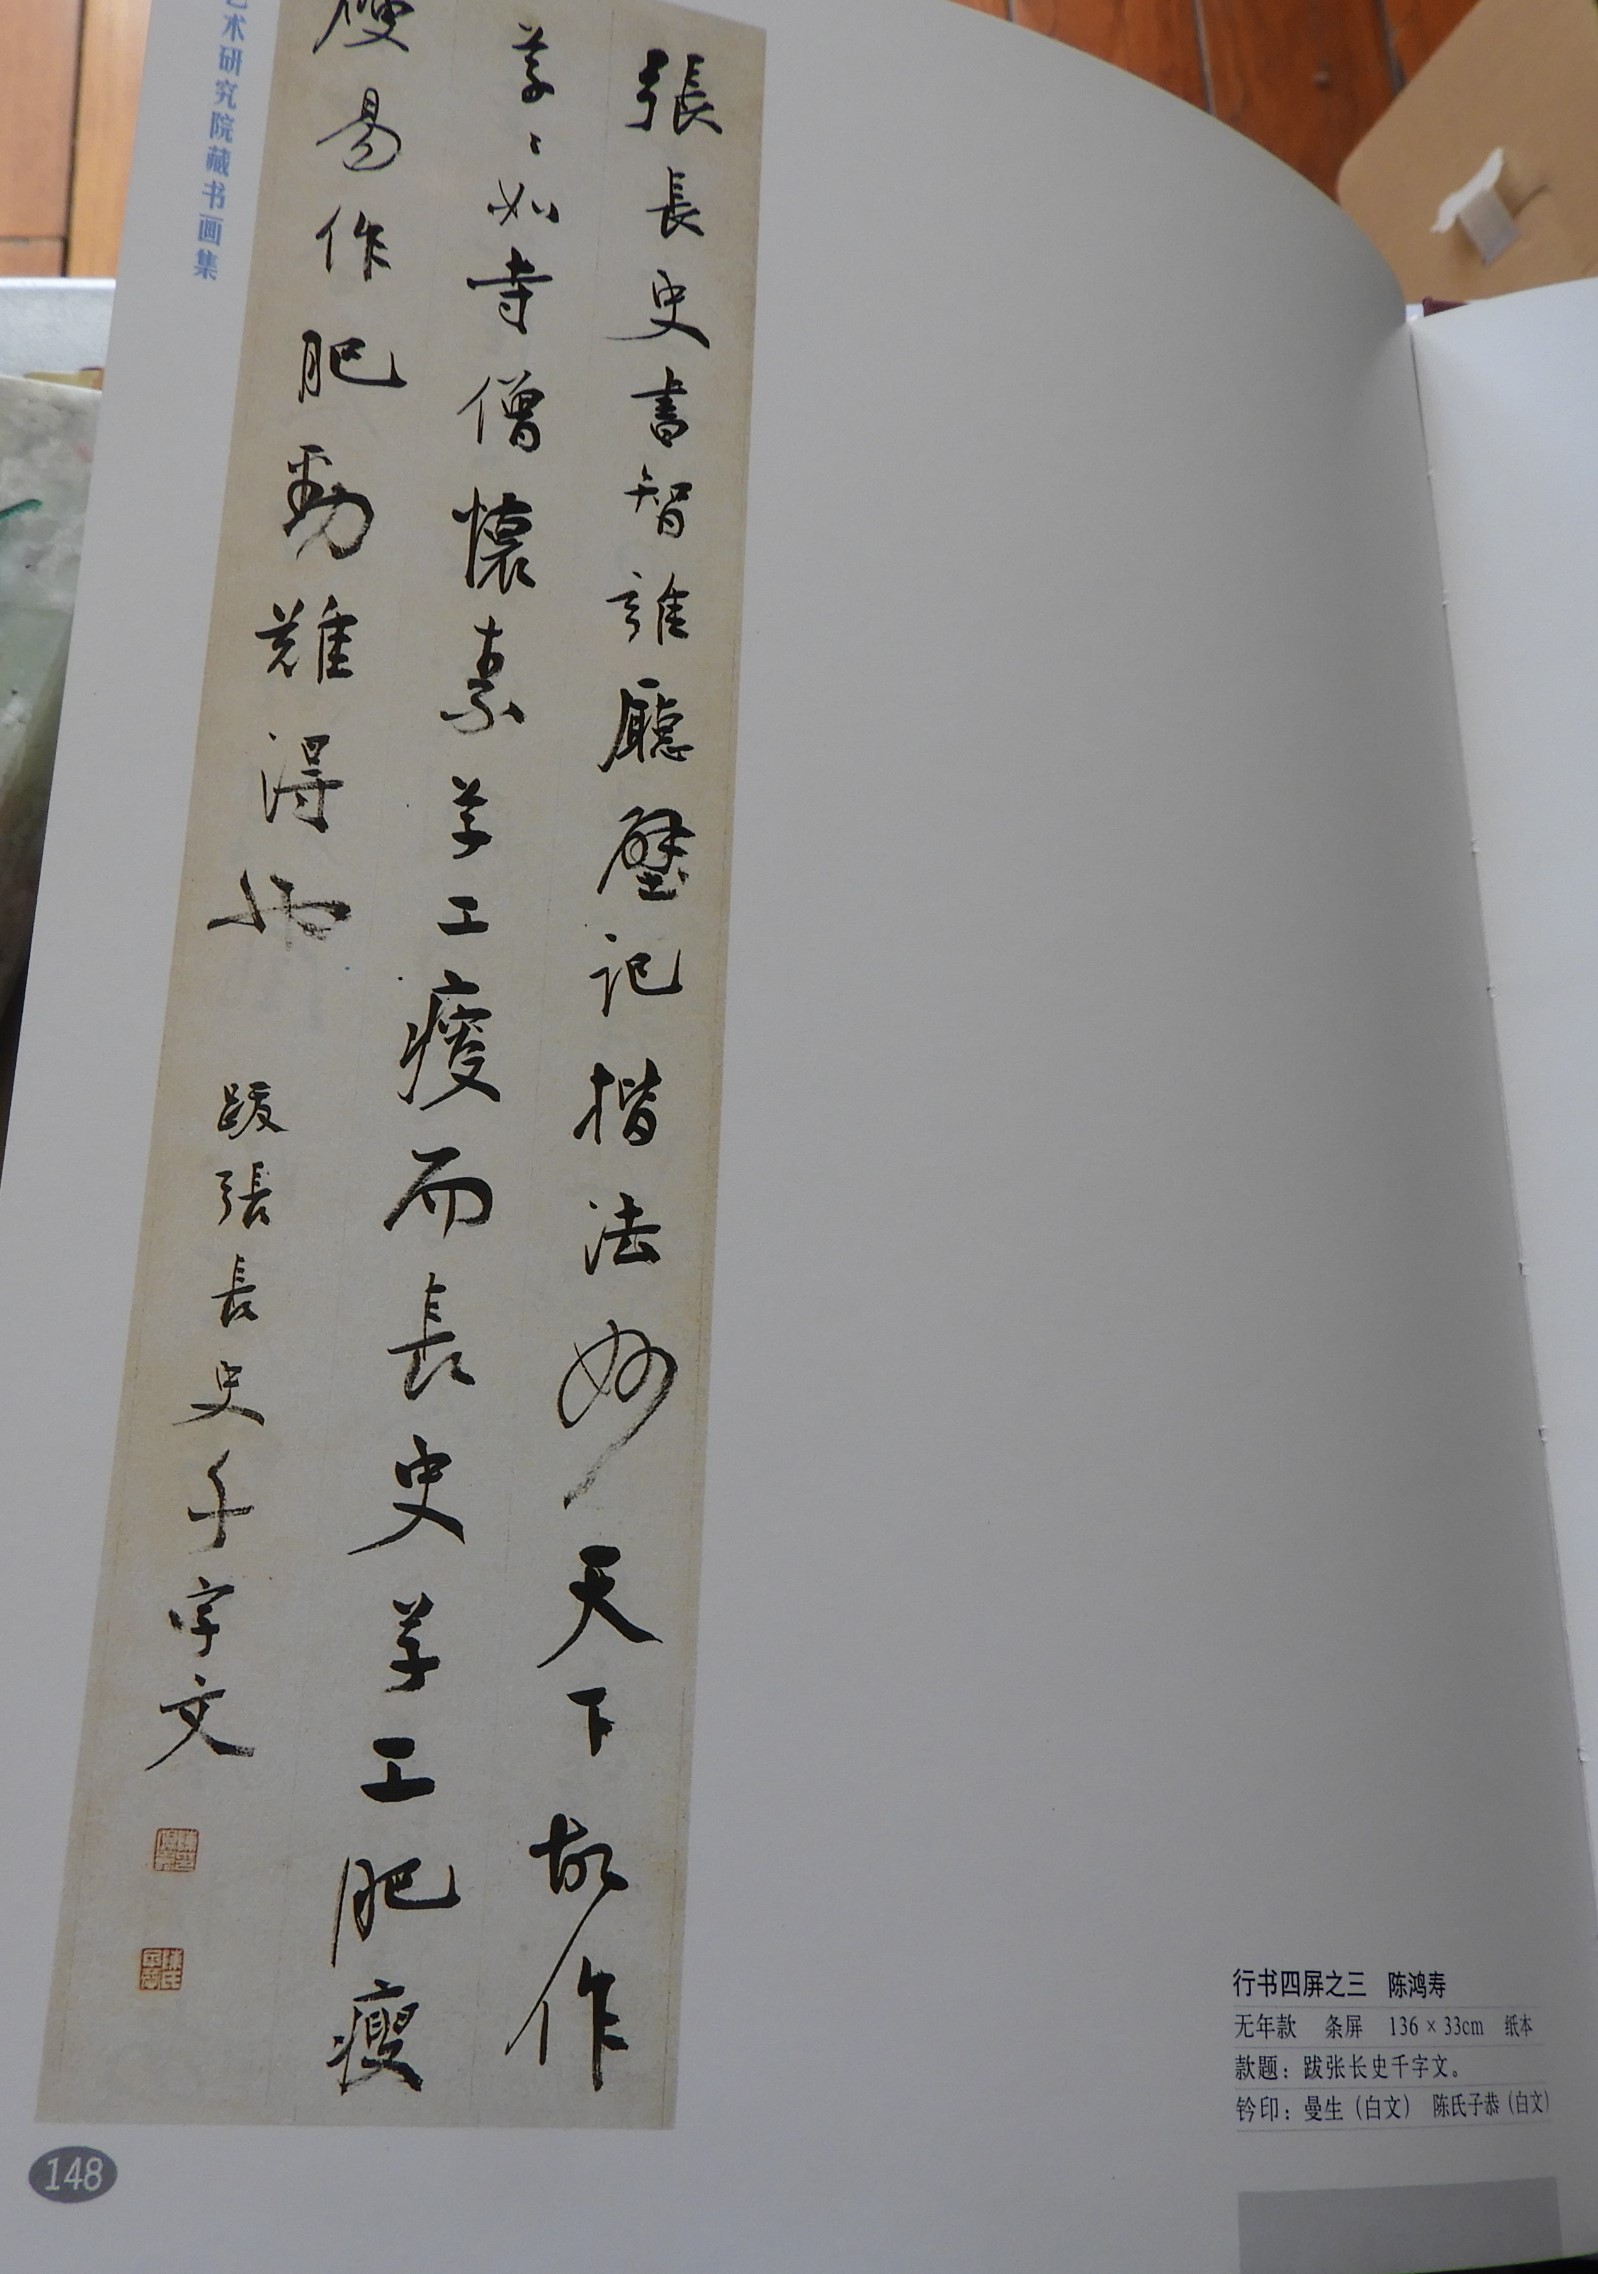 張長史書智雍廳壁記楷法妙天下故作
草〻如寺僧懷素草工瘦而長史草工肥瘦
硬易作肥勁難得也
跋張長史千字文
术研究院藏书画集
行书四屏之三 陈鸿寿
无年款 条屏 136×33cm 纸本
款题：跋张长史千字文。
钤印：曼生（白文） 陈氏子恭（白文）
148